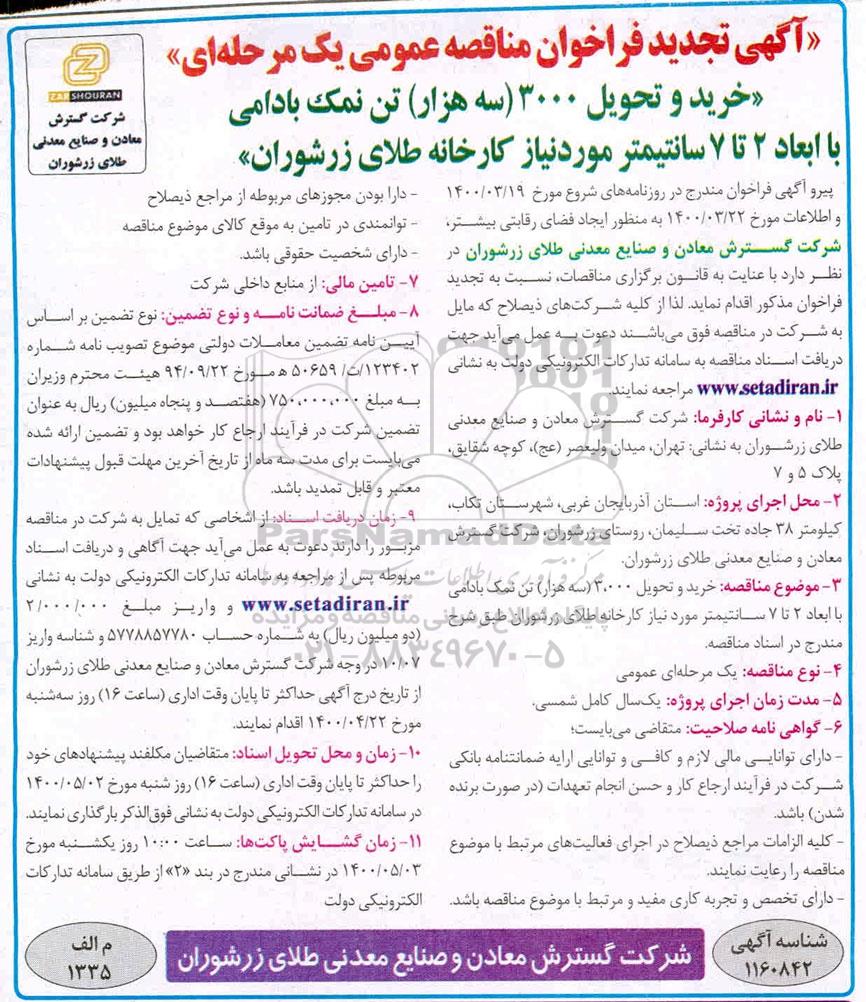 «آگهی تجدید فراخوان مناقصه عمومی یک مرحله‌ای»
«خرید و تحویل ۳۰۰۰ (سه هزار) تن نمک بادامی
با ابعاد ۲ تا ۷ سانتیمتر موردنیاز کارخانه طلای زرشوران»
ZARSHOURAN
شرکت گسترش
معادن و صنایع معدنی
طلای زرشوران
پیرو آگهی فراخوان مندرج در روزنامه‌های شروع مورخ ۱۴۰۰/۰۳/۱۹
و اطلاعات مورخ ۱۴۰۰/۰۳/۲۲ به منظور ایجاد فضای رقابتی بیشتر،
شرکت گسترش معادن و صنایع معدنی طلای زرشوران در
نظر دارد با عنایت به قانون برگزاری مناقصات، نسبت به تجدید
فراخوان مذکور اقدام نماید. لذا از کلیه شرکت‌های ذیصلاح که مایل
به شرکت در مناقصه فوق می‌باشند دعوت به عمل می‌آید جهت
دریافت اسناد مناقصه به سامانه تدارکات الکترونیکی دولت به نشانی
www.setadiran.ir مراجعه نمایند.
۱- نام و نشانی کارفرما: شرکت گسترش معادن و صنایع معدنی
طلای زرشوران به نشانی: تهران، میدان ولیعصر (عج)، کوچه شقایق،
پلاک ۵ و ۷
۲- محل اجرای پروژه: استان آذربایجان غربی، شهرستان تکاب،
کیلومتر ۳۸ جاده تخت سلیمان، روستای زرشوران، شرکت گسترش
معادن و صنایع معدنی طلای زرشوران.
۳- موضوع مناقصه: خرید و تحویل ۳،۰۰۰ (سه هزار) تن نمک بادامی
با ابعاد ۲ تا ۷ سانتیمتر مورد نیاز کارخانه طلای زرشوران طبق شرح
مندرج در اسناد مناقصه.
۴- نوع مناقصه: یک مرحله‌ای عمومی
۵- مدت زمان اجرای پروژه: یک‌سال کامل شمسی.
۶- گواهی نامه صلاحیت: متقاضی می‌بایست؛
- دارای توانایی مالی لازم و کافی و توانایی ارایه ضمانتنامه بانکی
شرکت در فرآیند ارجاع کار و حسن انجام تعهدات (در صورت برنده
شدن) باشد.
- کلیه الزامات مراجع ذیصلاح در اجرای فعالیت‌های مرتبط با موضوع
مناقصه را رعایت نمایند.
- دارای تخصص و تجربه کاری مفید و مرتبط با موضوع مناقصه باشد.
- دارا بودن مجوزهای مربوطه از مراجع ذیصلاح
- توانمندی در تامین به موقع کالای موضوع مناقصه
- دارای شخصیت حقوقی باشد.
۷- تامین مالی: از منابع داخلی شرکت
۸- مبلغ ضمانت نامه و نوع تضمین: نوع تضمین بر اساس
آیین نامه تضمین معاملات دولتی موضوع تصویب نامه شماره
۱۲۳۴۰۲/ت/ ۵۰۶۵۹ ه مورخ ۹۴/۰۹/۲۲ هیئت محترم وزیران
به مبلغ ۷۵۰،۰۰۰،۰۰۰ (هفتصد و پنجاه میلیون) ریال به عنوان
تضمین شرکت در فرآیند ارجاع کار خواهد بود و تضمین ارائه شده
می‌بایست برای مدت سه ماه از تاریخ آخرین مهلت قبول پیشنهادات
معتبر و قابل تمدید باشد.
۹- زمان دریافت اسناد: از اشخاصی که تمایل به شرکت در مناقصه
مزبور را دارند دعوت به عمل می‌آید جهت آگاهی و دریافت اسناد
مربوطه پس از مراجعه به سامانه تدارکات الکترونیکی دولت به نشانی
www.setadiran.ir و واریز مبلغ ۲/۰۰۰/۰۰۰
(دو میلیون ریال) به شماره حساب ۵۷۷۸۸۵۷۷۸۰ و شناسه واریز
۱۰/۰۷ در وجه شرکت گسترش معادن و صنایع معدنی طلای زرشوران
از تاریخ درج آگهی حداکثر تا پایان وقت اداری (ساعت ۱۶) روز سه‌شنبه
مورخ ۱۴۰۰/۰۴/۲۲ اقدام نمایند.
۱۰- زمان و محل تحویل اسناد: متقاضیان مکلفند پیشنهادهای خود
را حداکثر تا پایان وقت اداری (ساعت ۱۶) روز شنبه مورخ ۱۴۰۰/۰۵/۰۲
در سامانه تدارکات الکترونیکی دولت به نشانی فوق‌الذکر بارگذاری نمایند.
۱۱- زمان گشایش پاکت‌ها: ساعت ۱۰:۰۰ روز یکشنبه مورخ
۱۴۰۰/۰۵/۰۳ در نشانی مندرج در بند «۲» از طریق سامانه تدارکات
الکترونیکی دولت
ParsNamadData
پایگاه اطلاع رسانی مناقصه و مزایده
۰۲۱-۸۸۳۴۹۶۷۰-۵
شناسه آگهی
۱۱۶۰۸۴۲
شرکت گسترش معادن و صنایع معدنی طلای زرشوران
م الف
۱۳۳۵